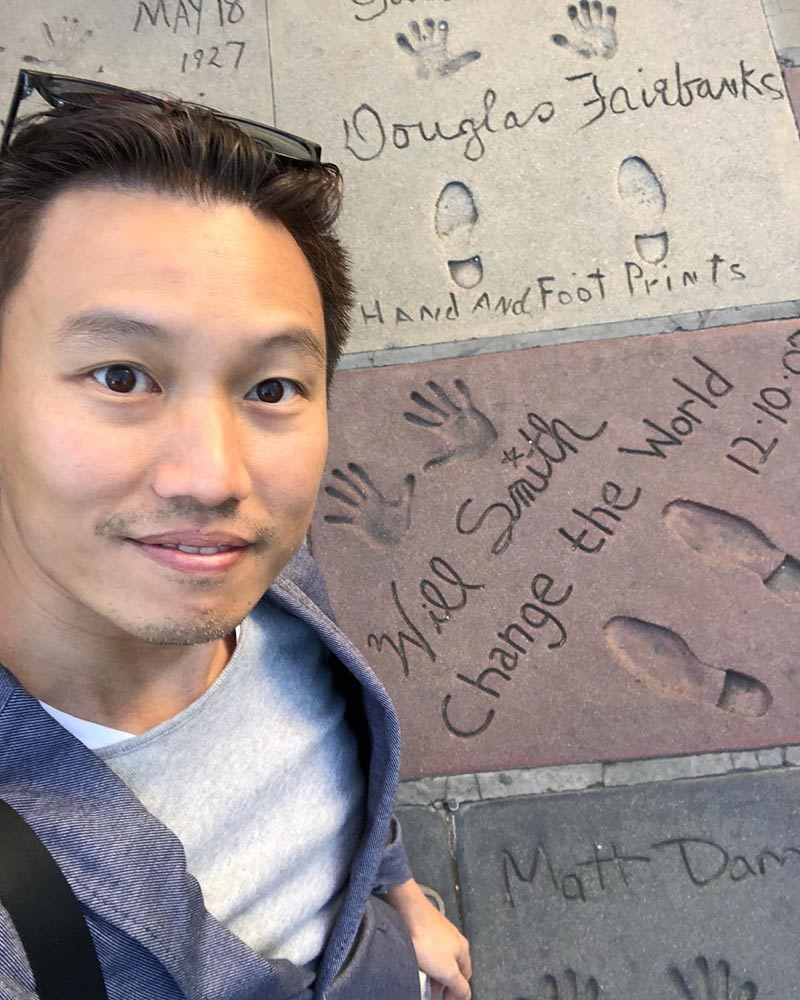 MAY 18
1927
Douglas Fairbanks
HAND AND Foot Prints
Will Smith
Change the World
12.10.07
Matt Dam